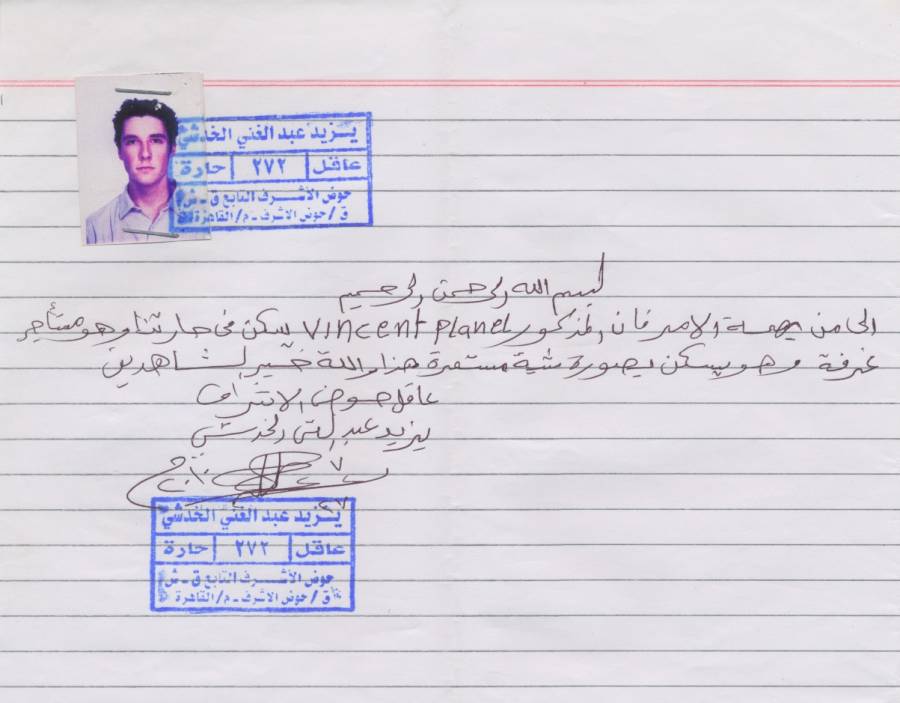 يزيد عبد الغني الخدشي
عاقل ٢٧٢ حارة
حوض الأشرف التابع ق - ش
ق / حوض الاشرف - م/القاهرة
بسم الله الرحمن الرحيم
الى من يهمه الامر فان المذكور Vincent Planel يسكن في حارتنا وهو مستأجر
غرفة وهو يسكن بصورة شبة مستمرة هذا والله خير الشاهدين
عاقل حوض الاشراف
يزيد عبد الغني الخدشي
يزيد عبد الغني الخدشي
عاقل ٢٧٢ حارة
حوض الأشرف التابع ق - ش
ق / حوض الاشرف - م/القاهرة